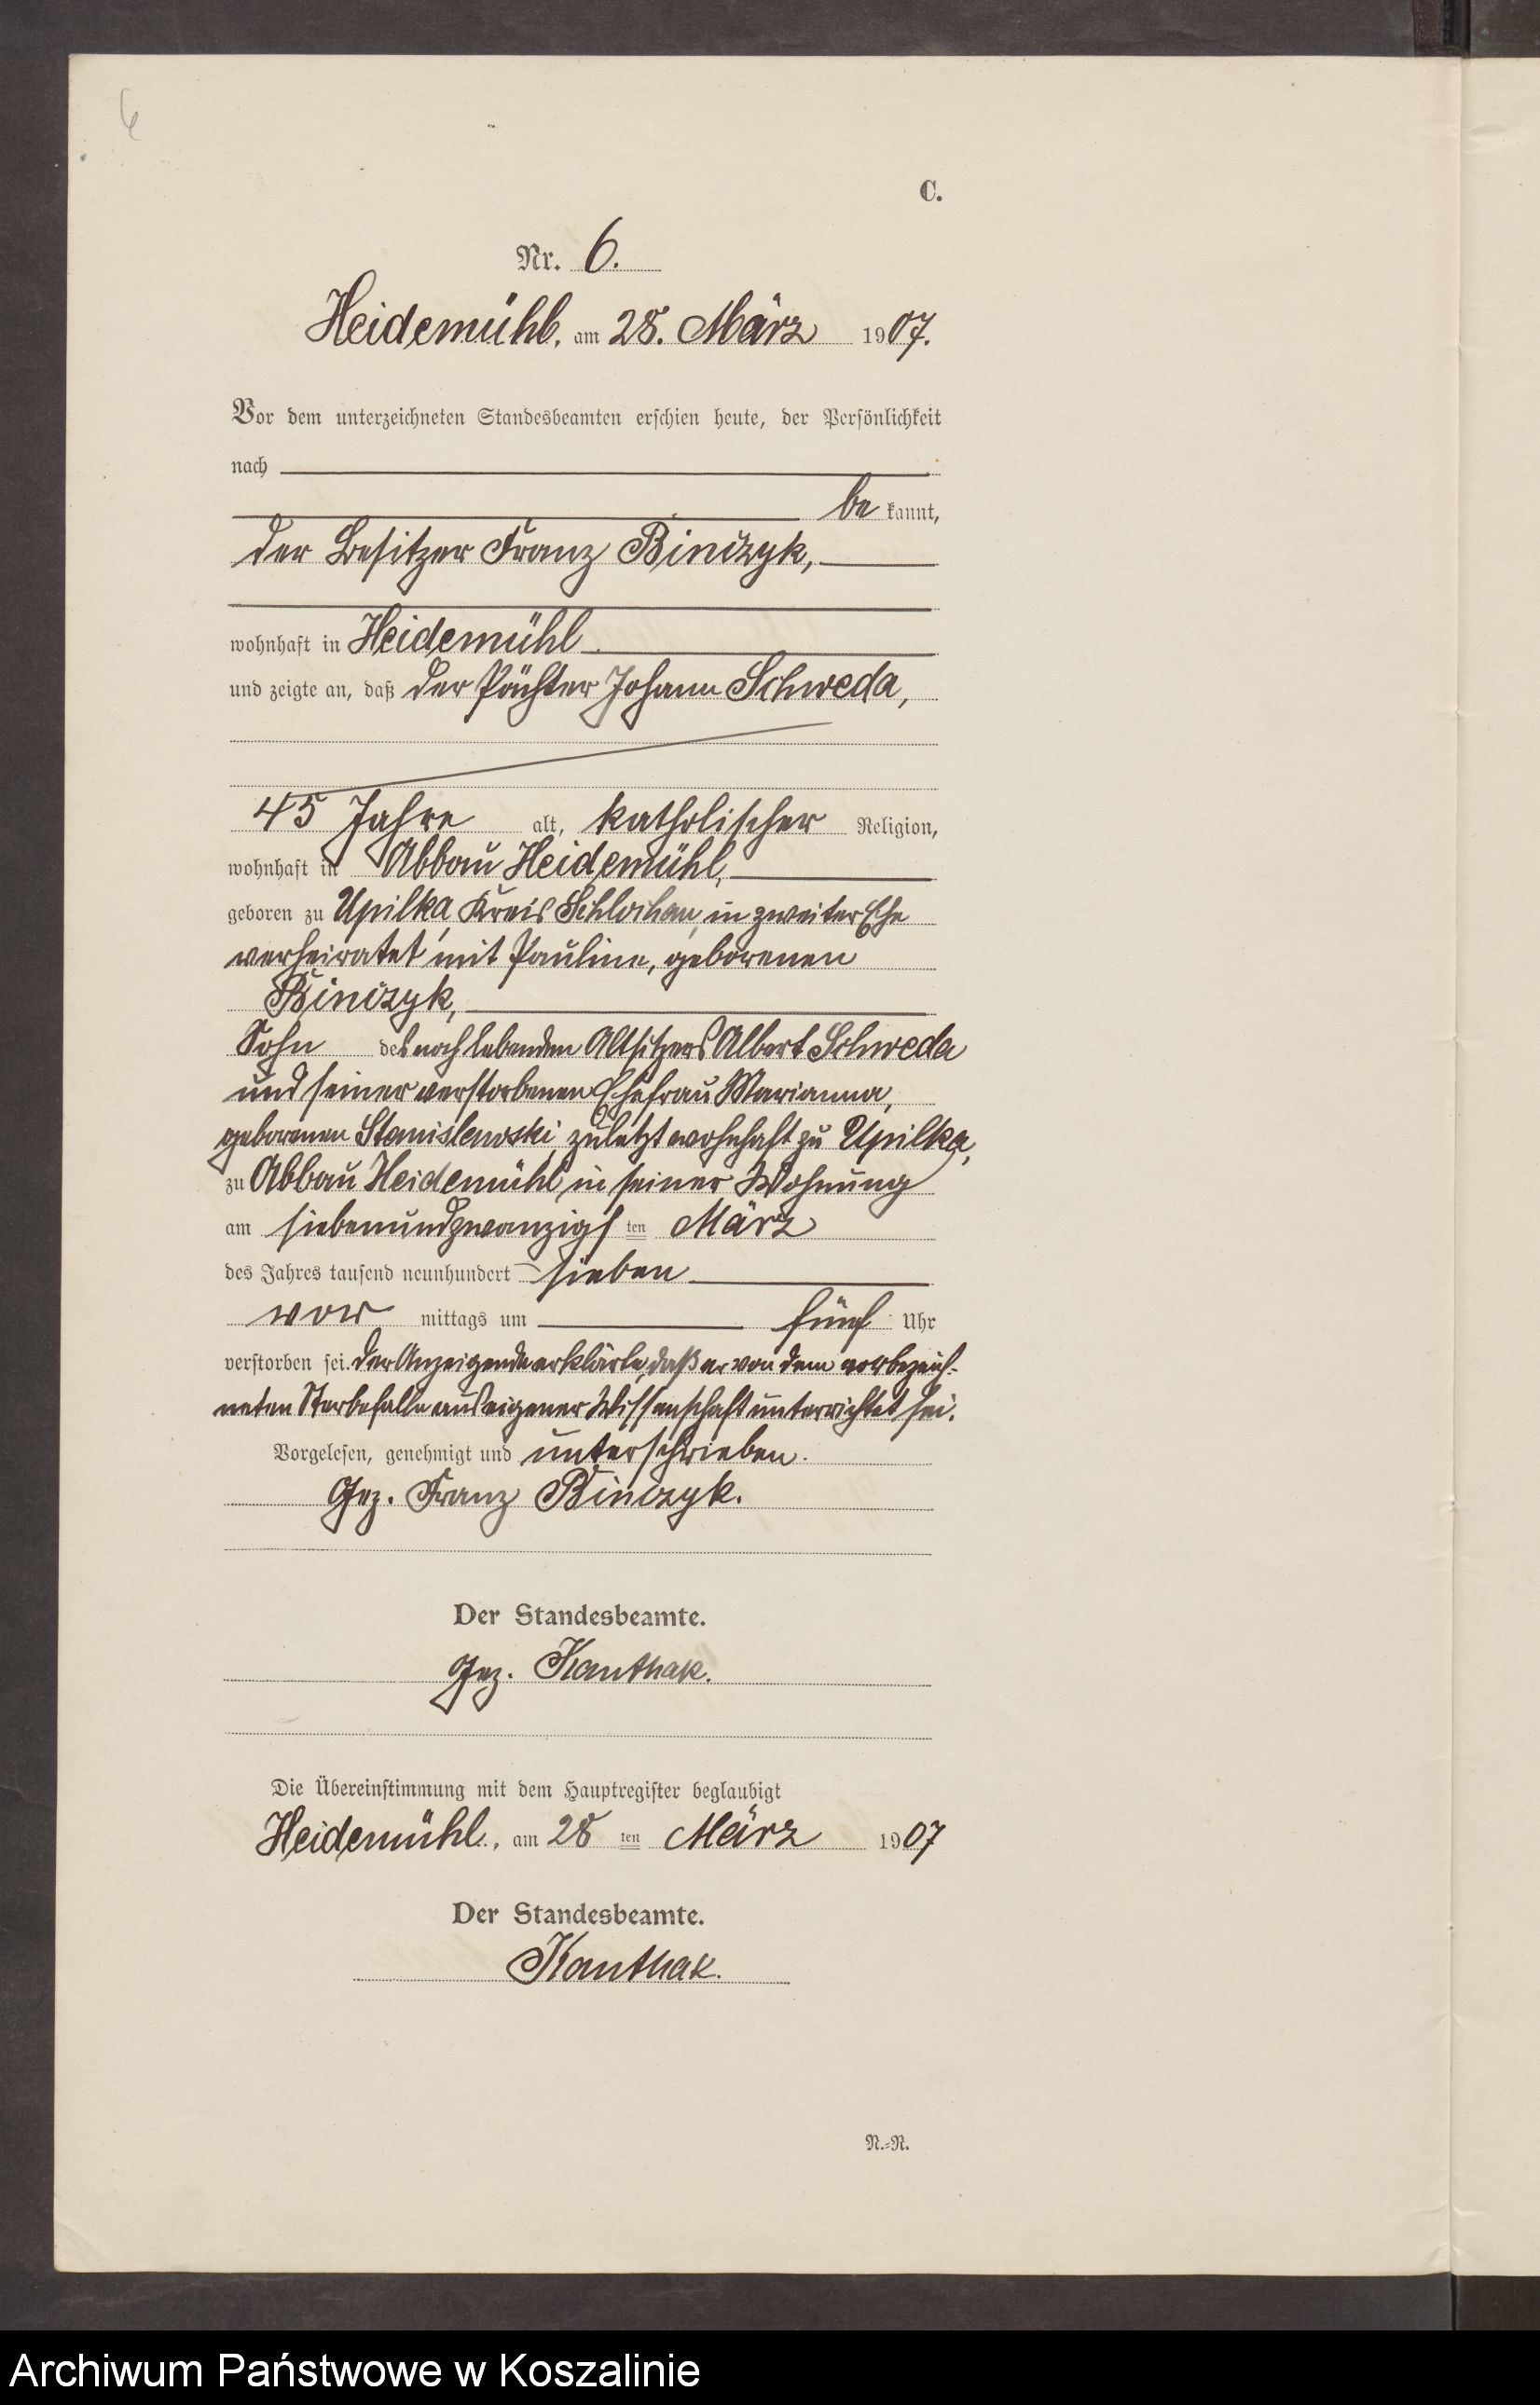 6
C.
Nr. 6.
Heidemühl, am 28. März 1907.
Vor dem unterzeichneten Standesbeamten erschien heute, der Persönlichkeit
nach
be kannt,
der Besitzer Franz Binczyk,
wohnhaft in Heidemühl
und zeigte an, daß der Pächter Johann Schweda,
45 Jahre alt, katholischer Religion,
wohnhaft in Abbau Heidemühl,
geboren zu Upilka, Kreis Schlochau, in zweiter Ehe
verheiratet mit Pauline, geborenen
Binczyk,
Sohn des noch lebenden Altsitzers Albert Schweda
und seiner verstorbenen Ehefrau Marianna,
geborenen Stanislewski, zuletzt wohnhaft zu Upilka,
zu Abbau Heidemühl in seiner Wohnung
am siebenundzwanzigsten März
des Jahres tausend neunhundert sieben
vor mittags um fünf Uhr
verstorben sei. Der Anzeigende erklärte, daß er von dem vorbezeich-
neten Sterbefalle aus eigener Wissenschaft unterrichtet sei.
Vorgelesen, genehmigt und unterschrieben.
Gez. Franz Binczyk.
Der Standesbeamte.
Gez. Kanthak.
Die Übereinstimmung mit dem Hauptregister beglaubigt
Heidemühl, am 28 ten März 1907
Der Standesbeamte.
Kanthak.
N.=R.
Archiwum Państwowe w Koszalinie